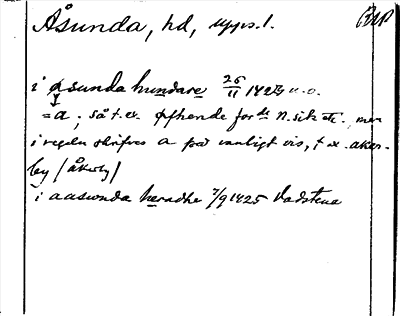 Åsunda, hd, Upps. l.
i øsunda hundare 25/11 1423 u.o.
= a ; så t. ex. øfhende for de N. sik etc., men
i regeln skrifves a på vanligt vis, t ex. aker-
by (åkerby)
i aaswnda heradhe 7/9 1425 Vadstena